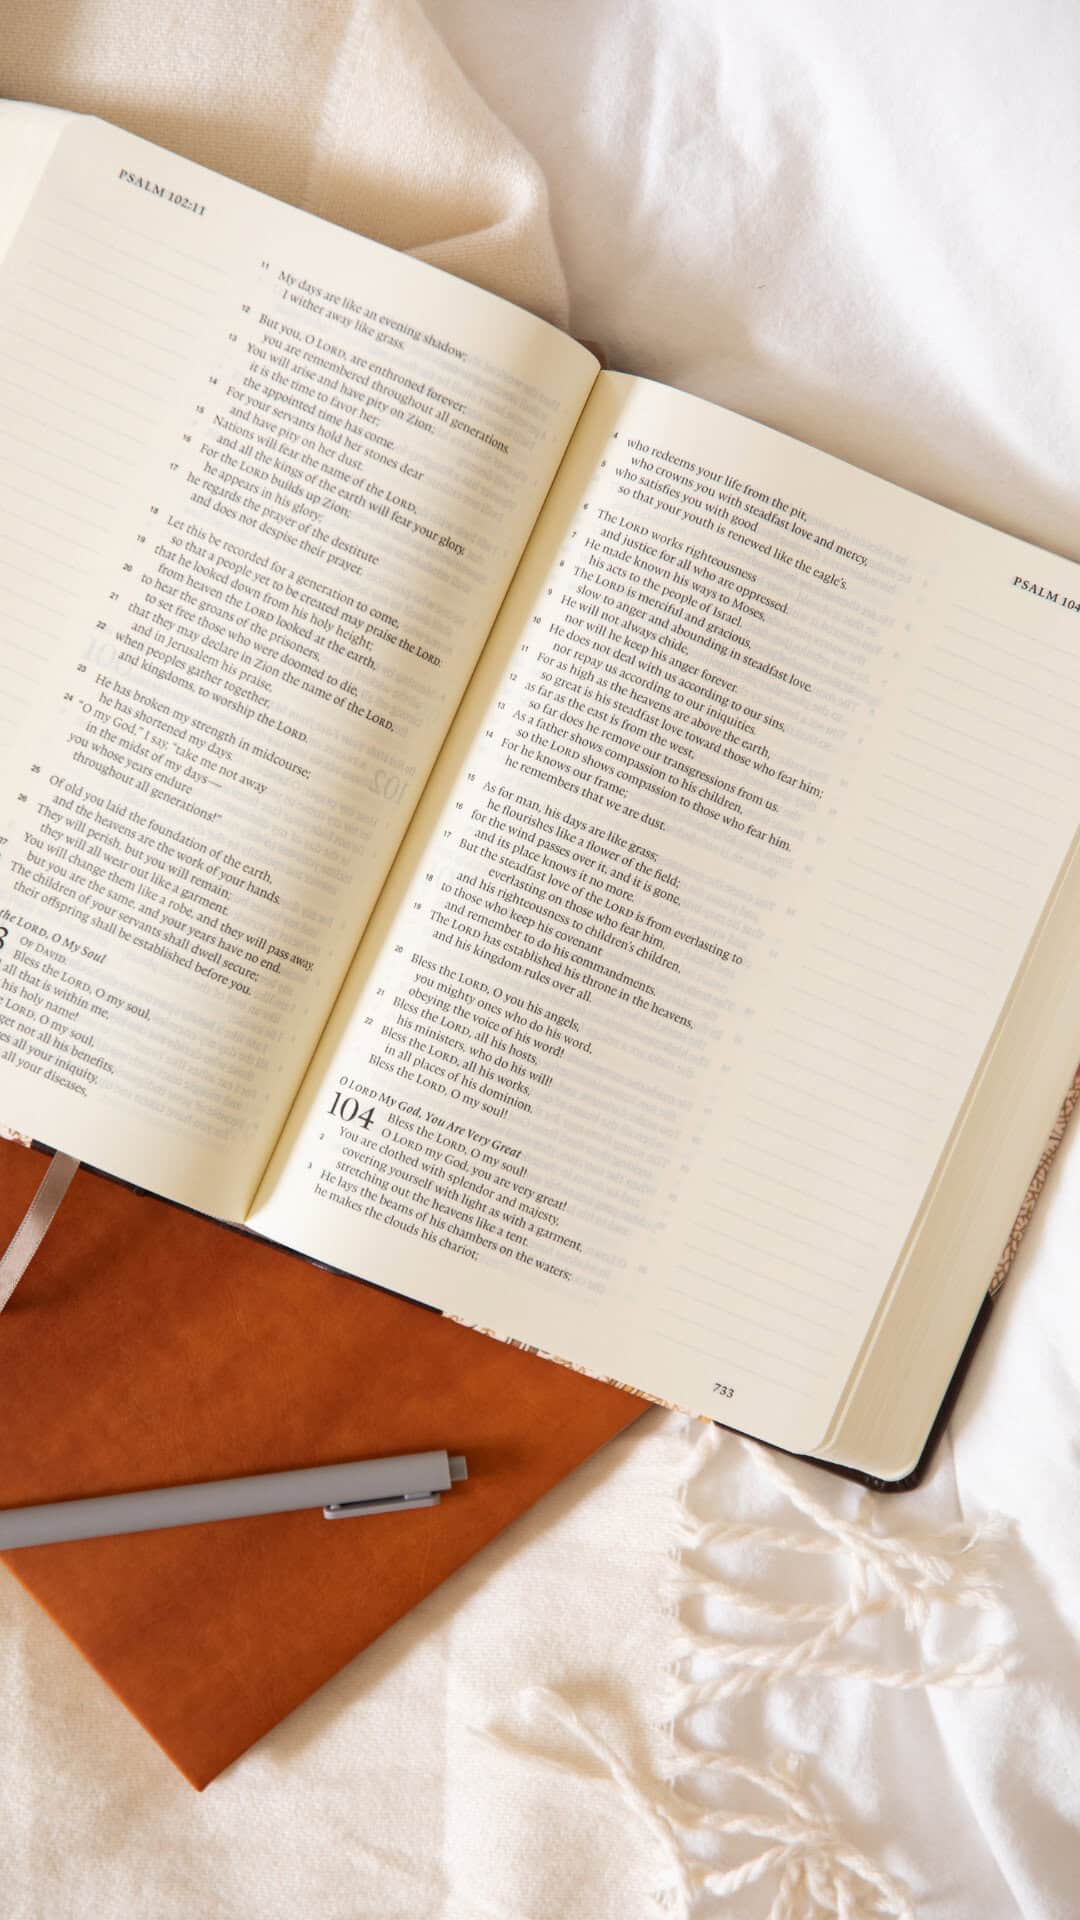 PSALM 102:11
11 My days are like an evening shadow;
I wither away like grass.
12 But you, O LORD, are enthroned forever;
you are remembered throughout all generations.
13 You will arise and have pity on Zion;
it is the time to favor her;
the appointed time has come.
14 For your servants hold her stones dear
and have pity on her dust.
15 Nations will fear the name of the LORD,
and all the kings of the earth will fear your glory.
16 For the LORD builds up Zion;
he appears in his glory;
17 he regards the prayer of the destitute
and does not despise their prayer.
18 Let this be recorded for a generation to come,
so that a people yet to be created may praise the LORD:
19 that he looked down from his holy height;
from heaven the LORD looked at the earth,
20 to hear the groans of the prisoners,
to set free those who were doomed to die,
21 that they may declare in Zion the name of the LORD,
and in Jerusalem his praise,
22 when peoples gather together,
and kingdoms, to worship the LORD.
23 He has broken my strength in midcourse;
he has shortened my days.
24 "O my God," I say, "take me not away
in the midst of my days—
you whose years endure
throughout all generations!"
25 Of old you laid the foundation of the earth,
and the heavens are the work of your hands.
26 They will perish, but you will remain;
they will all wear out like a garment.
You will change them like a robe, and they will pass away,
27 but you are the same, and your years have no end.
The children of your servants shall dwell secure;
their offspring shall be established before you.
the LORD, O My Soul
3 OF DAVID.
Bless the LORD, O my soul,
all that is within me,
his holy name!
LORD, O my soul,
get not all his benefits,
es all your iniquity,
all your diseases,
4 who redeems your life from the pit,
who crowns you with steadfast love and mercy,
5 who satisfies you with good
so that your youth is renewed like the eagle's.
6 The LORD works righteousness
and justice for all who are oppressed.
7 He made known his ways to Moses,
his acts to the people of Israel.
8 The LORD is merciful and gracious,
slow to anger and abounding in steadfast love.
9 He will not always chide,
nor will he keep his anger forever.
10 He does not deal with us according to our sins,
nor repay us according to our iniquities.
11 For as high as the heavens are above the earth,
so great is his steadfast love toward those who fear him;
12 as far as the east is from the west,
so far does he remove our transgressions from us.
13 As a father shows compassion to his children,
so the LORD shows compassion to those who fear him.
14 For he knows our frame;
he remembers that we are dust.
15 As for man, his days are like grass;
he flourishes like a flower of the field;
16 for the wind passes over it, and it is gone,
and its place knows it no more.
17 But the steadfast love of the LORD is from everlasting to
everlasting on those who fear him,
and his righteousness to children's children,
18 to those who keep his covenant
and remember to do his commandments.
19 The LORD has established his throne in the heavens,
and his kingdom rules over all.
20 Bless the LORD, O you his angels,
you mighty ones who do his word,
obeying the voice of his word!
21 Bless the LORD, all his hosts,
his ministers, who do his will!
22 Bless the LORD, all his works,
in all places of his dominion.
Bless the LORD, O my soul!
O LORD My God, You Are Very Great
104 Bless the LORD, O my soul!
O LORD my God, you are very great!
2 You are clothed with splendor and majesty,
covering yourself with light as with a garment,
stretching out the heavens like a tent.
3 He lays the beams of his chambers on the waters;
he makes the clouds his chariot;
PSALM 104
733